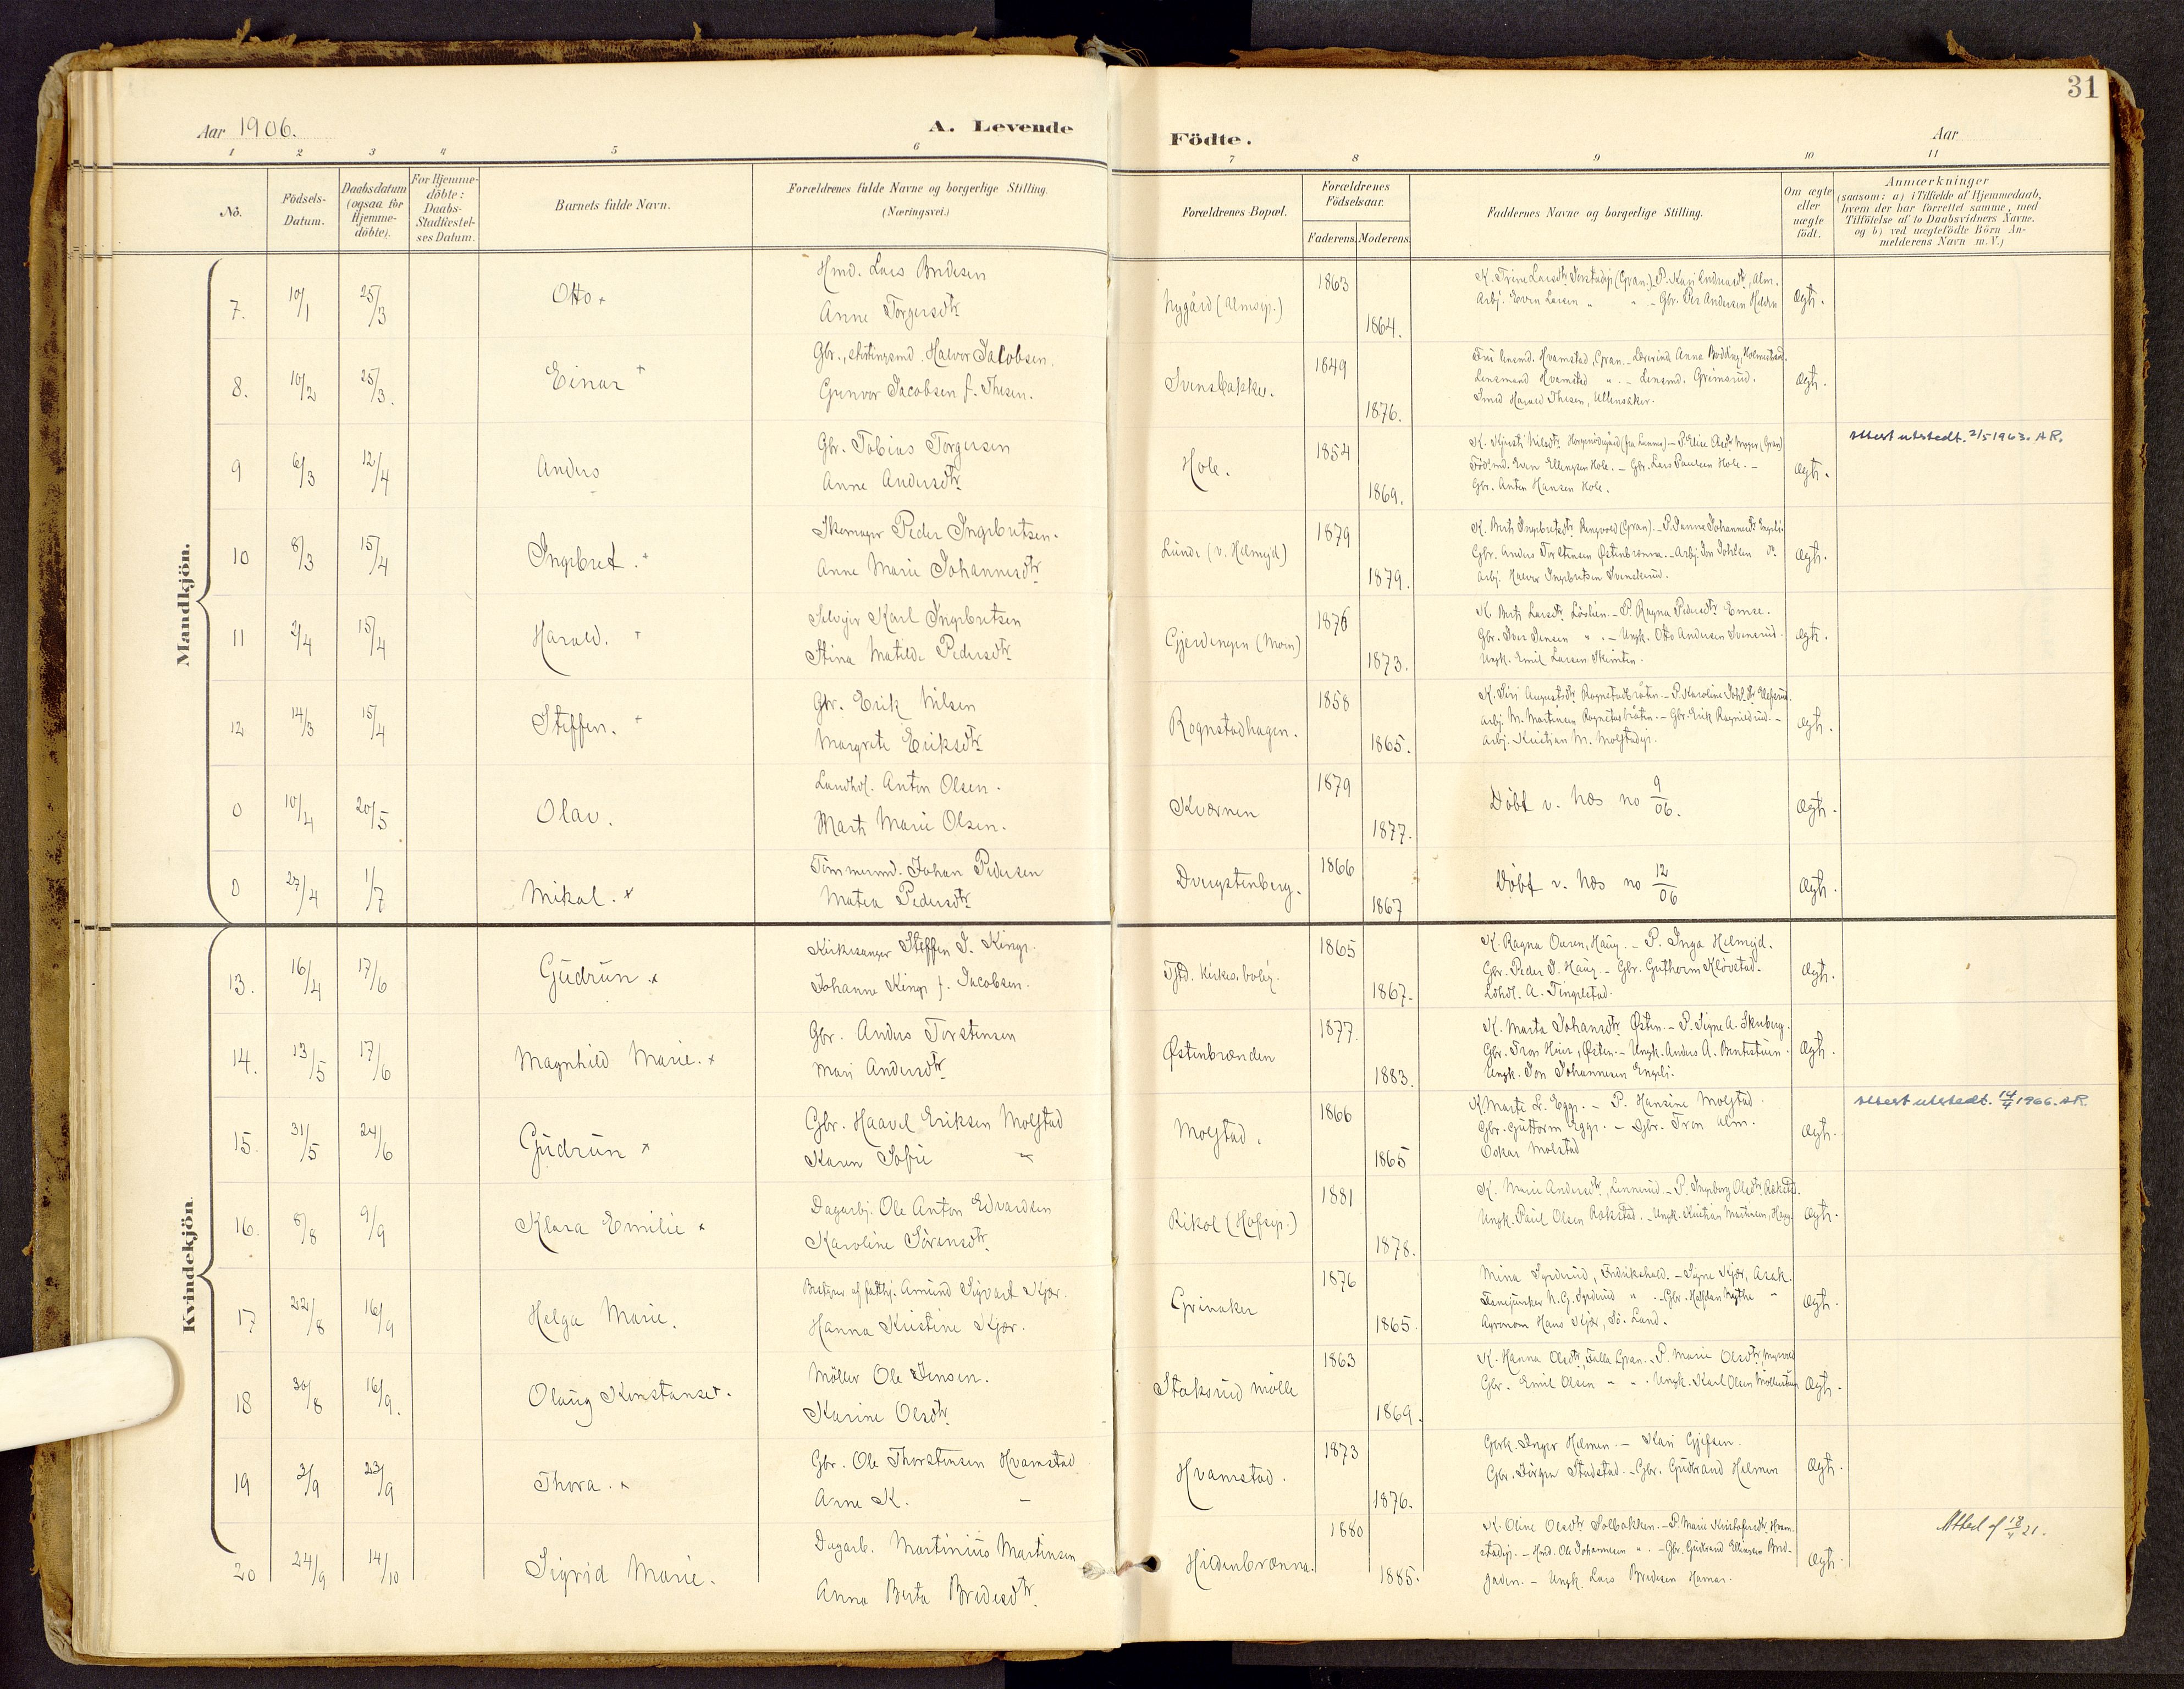 31
Aar 1906.
A. Levende
Födte.
Aar
1 2 3 4 5 6 7 8 9 10 11
Nö.
Födsels-
Datum.
Daabsdatum
(ogsaa for
Hjemme-
döbte).
For Hjemme-
döbte:
Daabs-
Stadfæstel-
ses Datum.
Barnets fulde Navn.
Forældrenes fulde Navne og borgerlige Stilling.
(Næringsvei.)
Forældrenes Bopæl.
Forældrenes
Födselsaar.
Faderens. Moderens.
Faddernes Navne og borgerlige Stilling.
Om ægte
eller
uægte
födt.
Anmærkninger
(saasom: a) i Tilfælde af Hjemmedaab,
hvem der har forrettet samme, med
Tilföielse af to Daabsvidners Navne.
og b) ved uægtefödte Börn An-
melderens Navn m.V.)
Mandkjön.
7. 10/1 25/3 Otto
Hmd. Lars Bredesen
Anne Torgersdtr
Nygård (Almsejr.)
1863
1864.
Arbj. Even Larsen " " - Gbr. Per Andersen
Ægte.
8. 10/2 25/3. Einar
Halvor Jacobsen.
Gunvor Jacobsen f. Thesen.
Svensbakken.
1849
1876.
Fru lensmd. Hvamstad, Gran. - Lærerinde Anna Bödding, Holmestrand.
Lensmand Hvamstad " - Lensmd. Grimsrud.
Smed Harald Thesen, Ullensaker.
Ægte.
9 6/3 12/4 Anders
Gbr. Tobias Torgersen
Anne Andersdtr
Hole.
1854
1869.
Even Ellingsen Hole. - Gbr. Lars Paulsen Hole. -
Gbr. Anton Hansen Hole.
Ægte.
Attest utstedt. 2/5 1963. AR.
10 8/3 15/4 Ingebret.
Skomager Peder Ingebretsen.
Anne Marie Johannesdtr
Lunde (v. Helmejd)
1879
1879.
K. Berte Ingebretsdtr Ringvold (Gran). - P. Janna Johannesdtr Engeli.
Gbr. Anders Torstensen Østenbrænna. - Arbj. Jon Johlsen do.
Arbj. Halvor Ingebretsen Svenskerud.
Ægte.
11 2/4 15/4 Harald.
Selvejer Karl Ingebretsen
Stina Matilde Pedersdtr
Gjerdingen (Moen)
1876
1873.
K. Berte Larsdtr Lövlien. - P. Ragna Pedersdtr
Gbr. Iver Jensen " - Ungk. Otto Andersen Svensrud.
Ungk. Emil Larsen
Ægte.
12 14/3 15/4 Steffen.
Gbr. Erik Nilsen
Margrete Eriksdtr
Rognstadhagen.
1858
1865.
K. Siri Augustsdtr Rognstadbråten. - P. Karoline
Arbj. M. Martinsen Rognstadbråten. - Gbr. Erik Ragnildrud. -
Arbj. Kristian M. Molstadejr.
Ægte.
0 10/4 20/5 Olav.
Landhdl. Anton Olsen.
Marte Marie Olsen.
Kværnen
1879
1877.
Döbt v. Næs no 9/06.
Ægte.
0 27/4 1/7 Mikal.
Tömmermd. Johan Pedersen
Matea Pedersdtr
Dvergstenberg.
1866
1867
Döbt v. Næs no 12/06
Ægte.
Kvindekjön.
13. 16/4 17/6 Gudrun
Kirkesanger Steffen J. Kinge.
Johanne Kinge f. Jacobsen.
Tgstd. Kirkes. bolig.
1865
1867.
K. Ragna Ouren, Haug. - P. Inga Helmejd.
Gbr. Peder J. Haug. - Gbr. Guthorm Klövstad.
Ldhdl. A. Tingelstad.
Ægte.
14. 13/5 17/6 Magnhild Marie.
Gbr. Anders Torstensen
Mari Andersdtr
Østenbrænden
1877.
1883.
K. Marta Johansdtr Østen. - P. Signe A. Skuberg.
Gbr. Tron Huser, Østen. - Ungk. Anders A.
Ungk. Jon Johannesen Engeli.
Ægte.
15. 31/5 24/6 Gudrun
Gbr. Haavel Eriksen Molstad
Karen Sofie "
Molstad.
1866
1865
K. Marte L. Egge. - P. Hansine Molstad.
Gbr. Guttorm Egge. - Gbr. Tron Alm.
Oskar Molstad
Ægte.
Attest utstedt. 14/4 1966. AR.
16. 8/8 9/9 Klara Emilie
Dagarbj. Ole Anton Edvardsen
Karoline Sörensdtr
Rikol (Hofsejr.)
1881
1878.
K. Marie Andersdtr, Lennerud. - P. Ingeborg Olsdtr Rækstad.
Ungk. Paul Olsen Rækstad. - Ungk. Kristian Martinsen,
Ægte.
17 22/8 16/9 Helga Marie.
Bestyrer af fattbj. Amund Sigvart Kjær.
Hanna Kristine Kjær.
Grinaker
1876
1865.
Mina Lyserud, Fredrikshald. - Signe Kjær, Asak.
Fanejunker N. G. Lyserud " - Gbr. Halfdan Mythe "
Agronom Hans Kjær, Sö. Land.
Ægte.
18 30/8 16/9. Olaug Konstanse.
Möller Ole Jensen.
Karine Olsdtr
Staksrud mölle
1863
1869.
K. Hanna Olsdtr, Falla Gran. - P. Marie Olsdtr,
Gbr. Emil Olsen " " - Ungk. Karl Olsen Möllerstuen
Ægte.
19 3/9 23/9 Thora.
Gbr. Ole Thorstensen Hvamstad
Anne K. "
Hvamstad.
1873
1876.
Inger Helmen. - Kari Gjefsen.
Gbr. Jörgen Stadstad. - Gbr. Gudbrand Helmen
Ægte.
20 24/9 14/10 Sigrid Marie.
Dagarb. Martinius Martinsen
Anna Berta Bredesdtr.
Hildenbrænna.
1880
1885.
K. Oline Olsdtr Solbakken. - P. Marie Kristofersdtr Hvam-
stadejr. - Hmd. Ole Johannesen " - Gbr. Gudbrand Ellingsen Bred-
gaden. - Ungk. Lars Bredesen Hamar.
Ægte.
Attest 18/4 21.